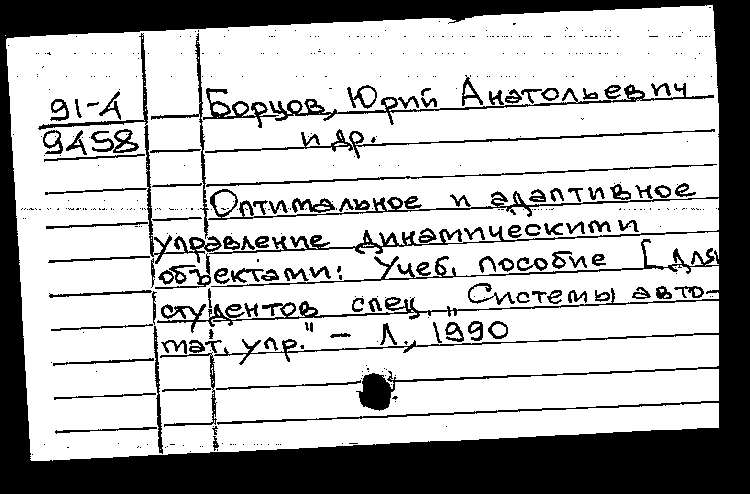 91-4 Борцов, Юрий Анатольевич
9458 и др.
Оптимальное и адаптивное
управление динамическими
объектами: Учеб. пособие [для
студентов спец. „Системы авто-
мат. упр." - Л., 1990